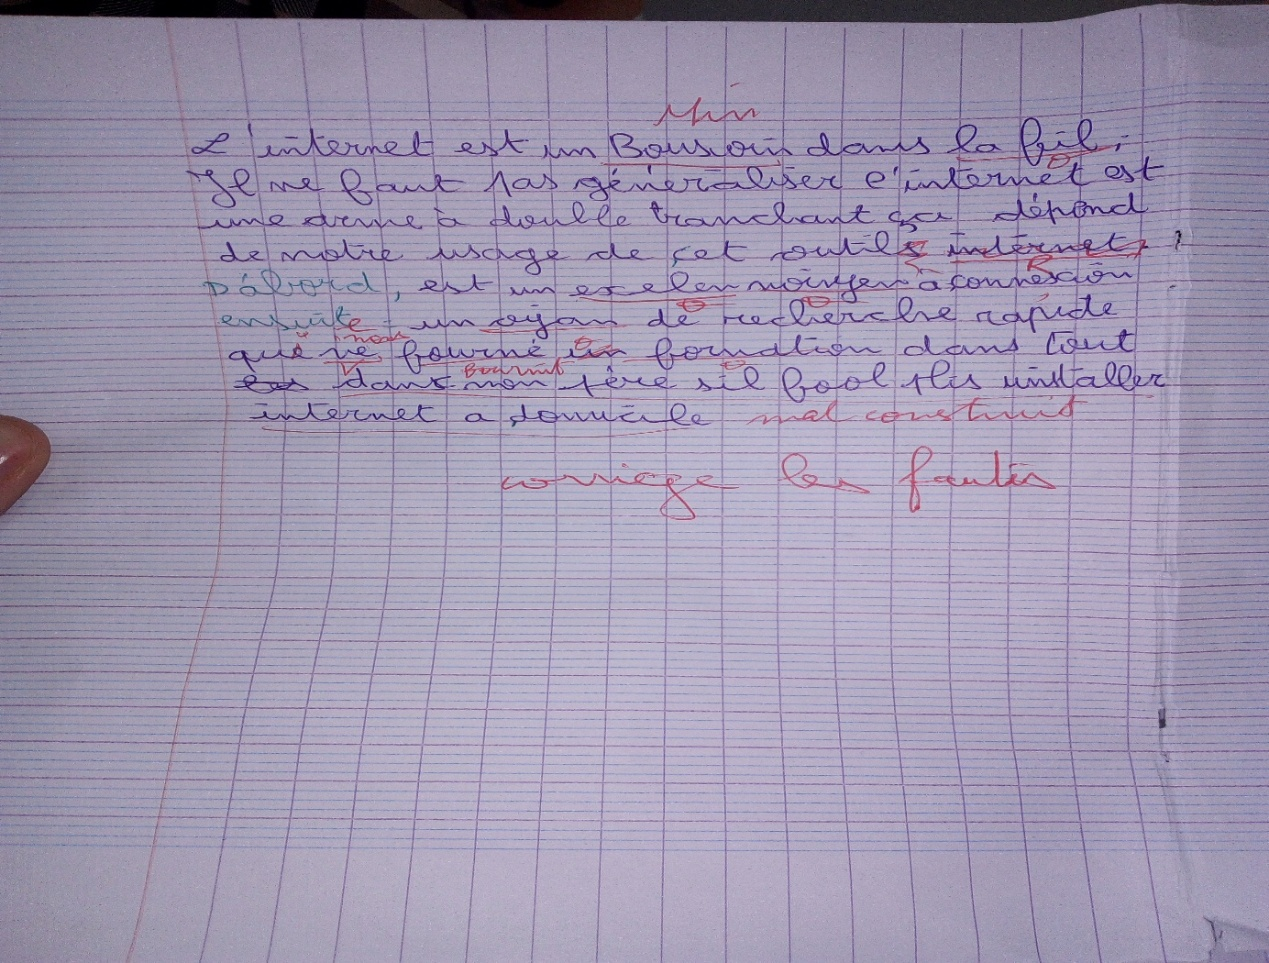 Min
L'internet est un Bousjoin dans la fil,
Il ne faut pas géneraliser l'internet est
une arme à double tranchant ça dépend
de notre usage de cet outils internet, ?
D'abord, est un excelen moiyen à connexion
ensuite, un oyan de recherche rapide
qué nous
ne fourné in formation dans tout
fournit
dans mon père sil fool plis installer
internet a domicile mal construit
corriege les fautes